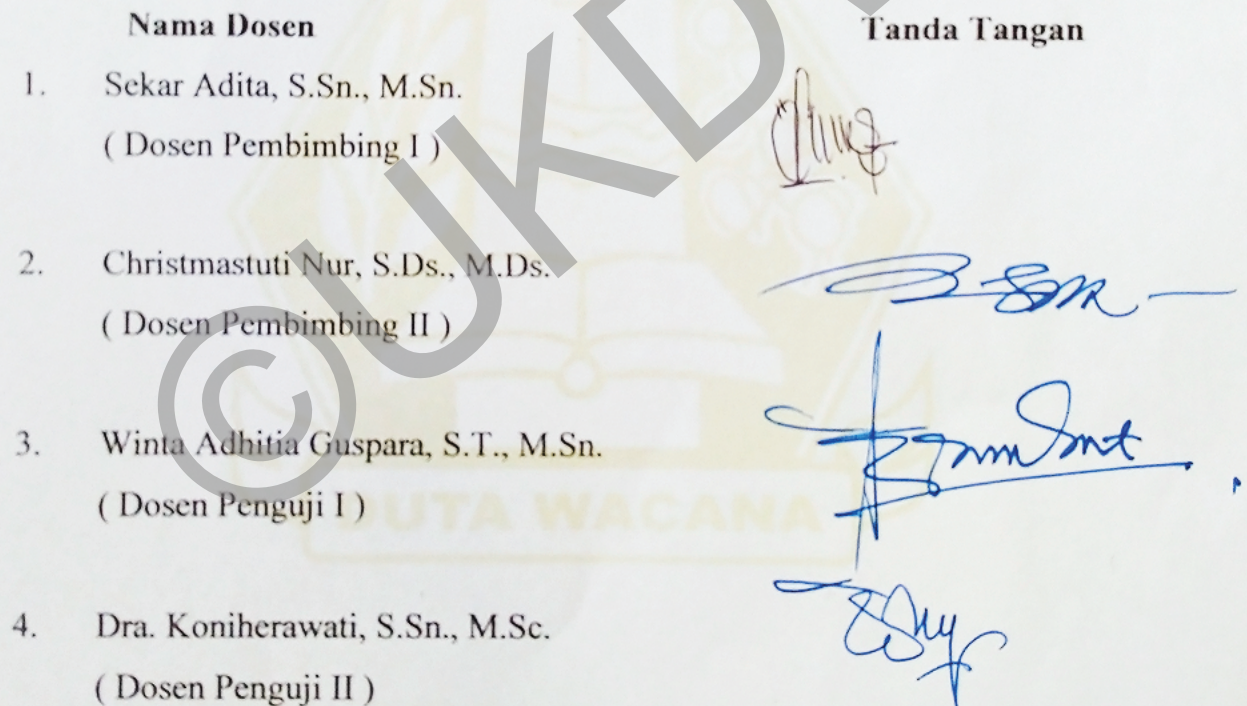 Nama Dosen Tanda Tangan
1. Sekar Adita, S.Sn., M.Sn.
( Dosen Pembimbing I )
2. Christmastuti Nur, S.Ds., M.Ds.
( Dosen Pembimbing II )
3. Winta Adhitia Guspara, S.T., M.Sn.
( Dosen Penguji I )
4. Dra. Koniherawati, S.Sn., M.Sc.
( Dosen Penguji II )
©UKD
DUTA WACANA